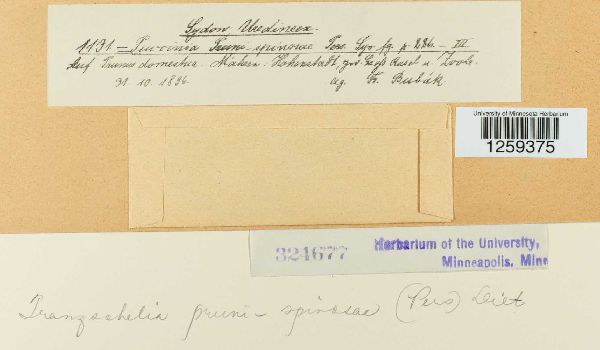 Sydow, Uredineen.
1131 = Puccinia Pruni spinosae Pers. Syn. fg. p. 226. – III.
Auf Prunus domestica. Mähren: Hohenstadt, u.
31. 10. 1896. lg. Fr. Bubák.
University of Minnesota Herbarium
1259375
324677 Herbarium of the University,
Minneapolis, Minn
Tranzschelia pruni-spinosae (Pers) Diet